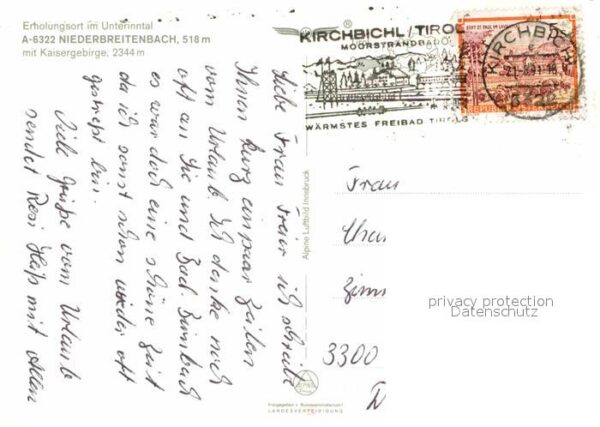 Erholungsort im Unterinntal
A-6322 NIEDERBREITENBACH, 518 m
mit Kaisergebirge, 2344 m
KIRCHBICHL / TIROL
MOORSTRANDBAD
WÄRMSTES FREIBAD TIROLS
KIRCHBICHL
Liebe Frau ich schreibe
Ihnen kurz ein paar Zeilen
vom Urlaub. Ich denke noch
oft an Sie und Bad
es war doch eine schöne Zeit
da ich sonst schon wieder oft
gewest bin.
Viele Grüße vom Urlaub
sendet Resi mit allen
Alpine Luftbild Innsbruck
Frau
3300
privacy protection
Datenschutz
LANDESVERTEIDIGUNG